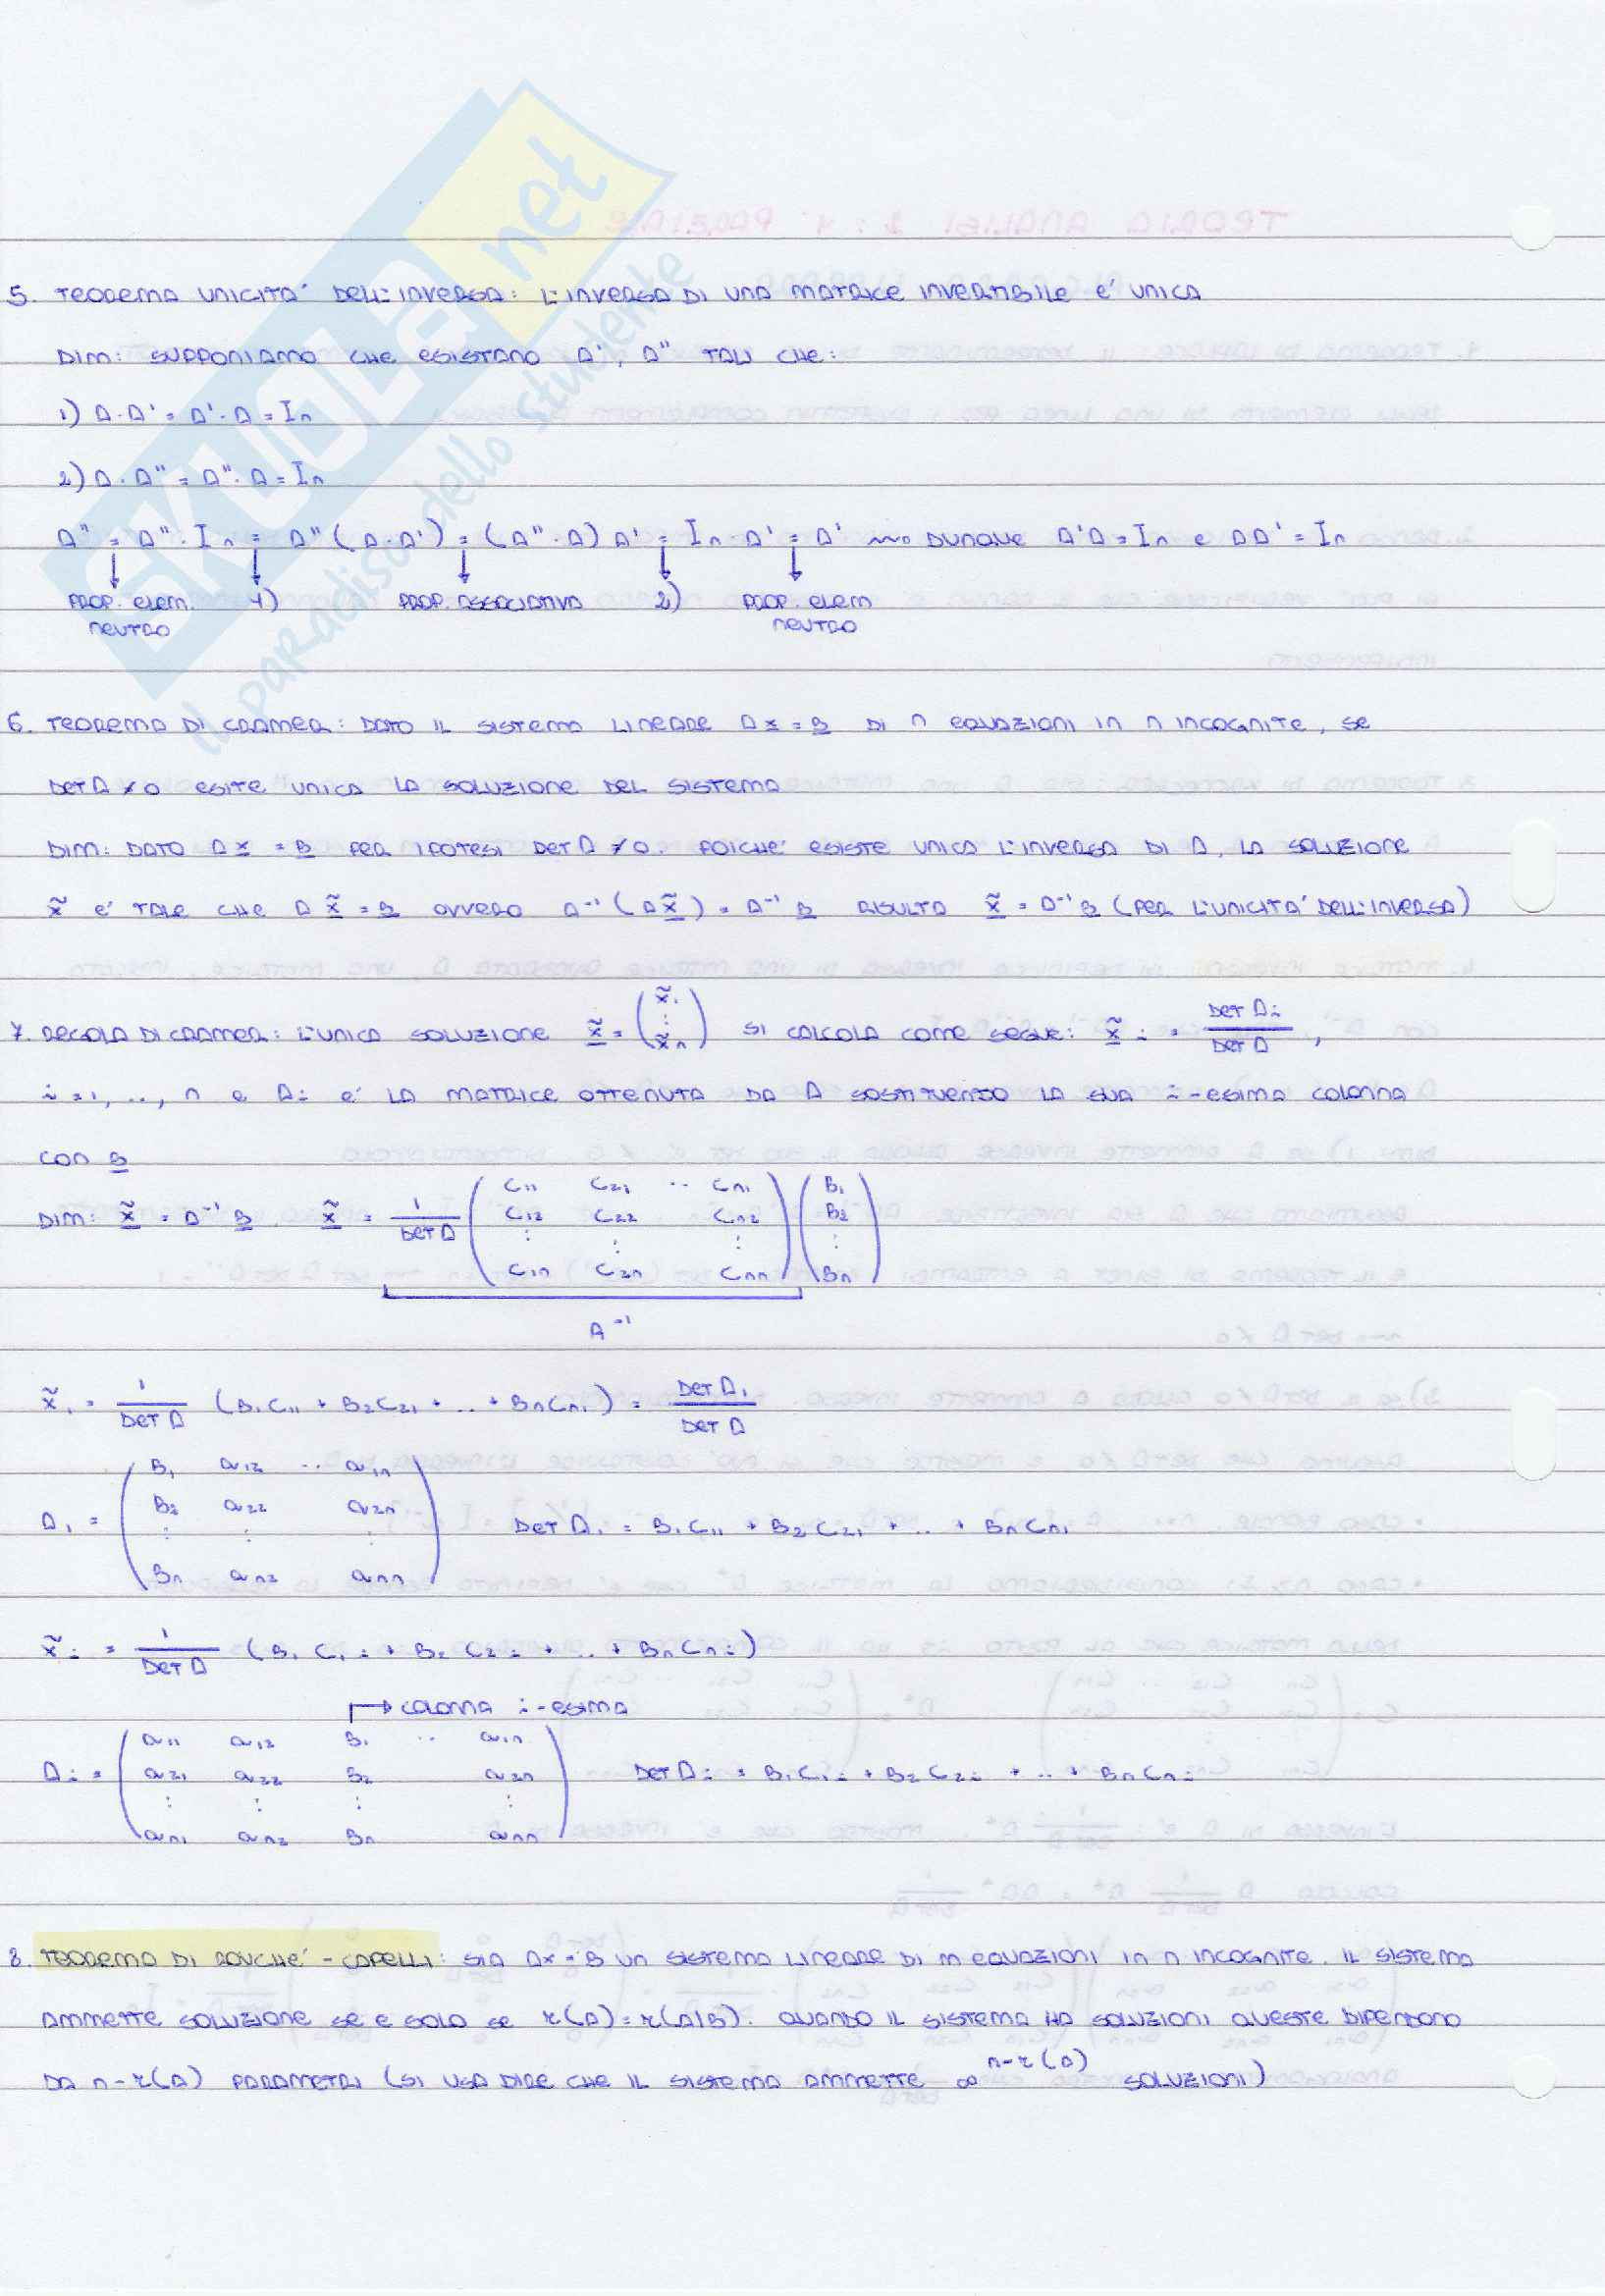 SKUOLA.net
il paradiso dello studente
5. TEOREMA UNICITA' DELL'INVERSA: L'INVERSA DI UNA MATRICE INVERTIBILE E' UNICA
DIM: SUPPONIAMO CHE ESISTANO A', A" TALI CHE:
1) A·A' = A'·A = In
2) A·A" = A"·A = In
A" = A"·In = A"(A·A') = (A"·A)A' = In·A' = A' ⇝ DUNQUE A'A = In E AA' = In
PROP. ELEM. 1) PROP. ASSOCIATIVA 2) PROP. ELEM
NEUTRO NEUTRO
6. TEOREMA DI CRAMER: DATO IL SISTEMA LINEARE Ax = B DI n EQUAZIONI IN n INCOGNITE, SE
DET A ≠ 0 ESITE UNICA LA SOLUZIONE DEL SISTEMA
DIM: DATO Ax = B PER IPOTESI DET A ≠ 0. POICHE' ESISTE UNICA L'INVERSA DI A, LA SOLUZIONE
x̃ E' TALE CHE Ax̃ = B OVVERO A⁻¹(Ax̃) = A⁻¹B RISULTA x̃ = A⁻¹B (PER L'UNICITA' DELL'INVERSA)
7. REGOLA DI CRAMER: L'UNICA SOLUZIONE x̃ = (x̃1 ⋮ x̃n) SI CALCOLA COME SEGUE: x̃i = DET Ai / DET A,
i = 1, .., n E Ai E' LA MATRICE OTTENUTA DA A SOSTITUENDO LA SUA i-ESIMA COLONNA
CON B
DIM: x̃ = A⁻¹B x̃ = 1/DET A (C11 C21 .. Cn1
C12 C22 Cn2
⋮ ⋮ ⋮
C1n C2n Cnn) (B1 B2 ⋮ Bn)
A⁻¹
x̃1 = 1/DET A (B1C11 + B2C21 + .. + BnCn1) = DET A1 / DET A
A1 = (B1 a12 .. a1n
B2 a22 a2n
⋮ ⋮ ⋮
Bn an2 ann) DET A1 = B1C11 + B2C21 + .. + BnCn1
x̃i = 1/DET A (B1C1i + B2C2i + .. + BnCni)
↱ COLONNA i-ESIMA
Ai = (a11 a12 B1 .. a1n
a21 a22 B2 a2n
⋮ ⋮ ⋮ ⋮
an1 an2 Bn ann) DET Ai = B1C1i + B2C2i + .. + BnCni
8. TEOREMA DI ROUCHE'-CAPELLI: SIA Ax = B UN SISTEMA LINEARE DI m EQUAZIONI IN n INCOGNITE. IL SISTEMA
AMMETTE SOLUZIONE SE E SOLO SE r(A) = r(A|B). QUANDO IL SISTEMA HA SOLUZIONI QUESTE DIPENDONO
DA n-r(A) PARAMETRI (SI USA DIRE CHE IL SISTEMA AMMETTE ∞^(n-r(A)) SOLUZIONI)